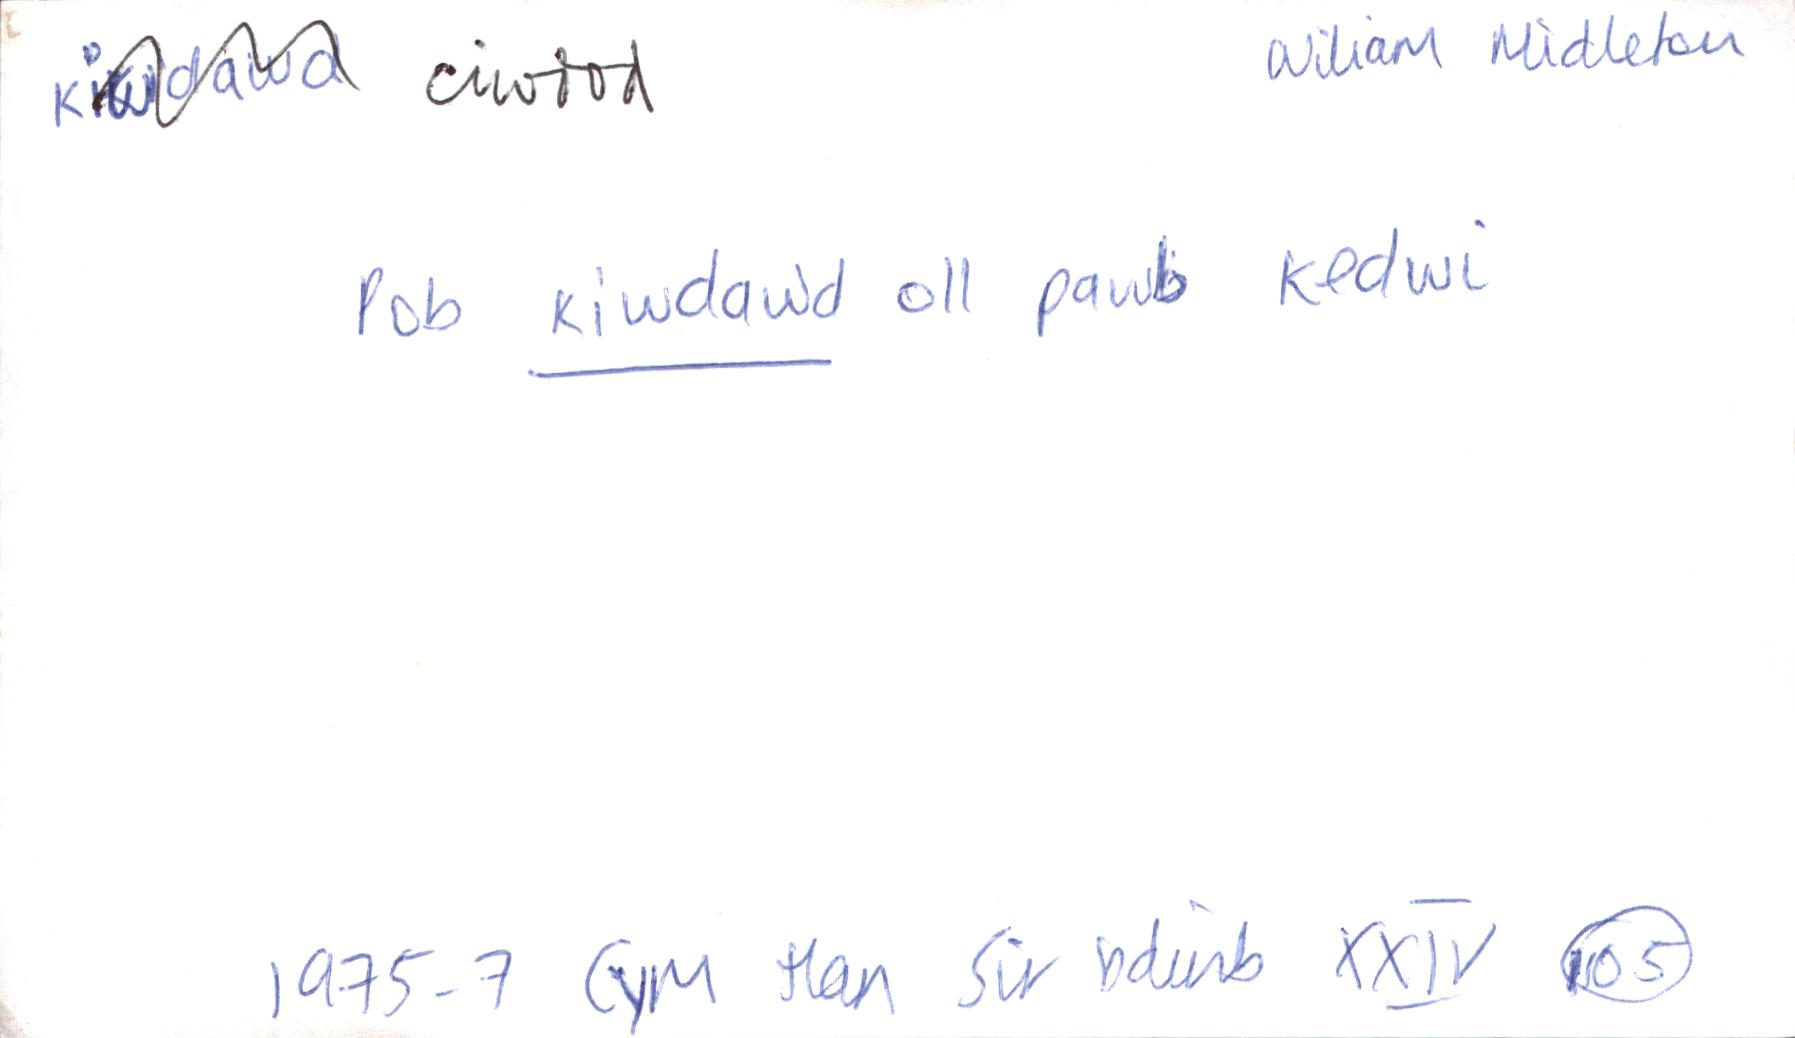 kiwdawd ciwdod Wiliam Midleton
Pob kiwdawd oll pawb kedwi
1975-7 Cym Han Sir Ddinb XXIV 105